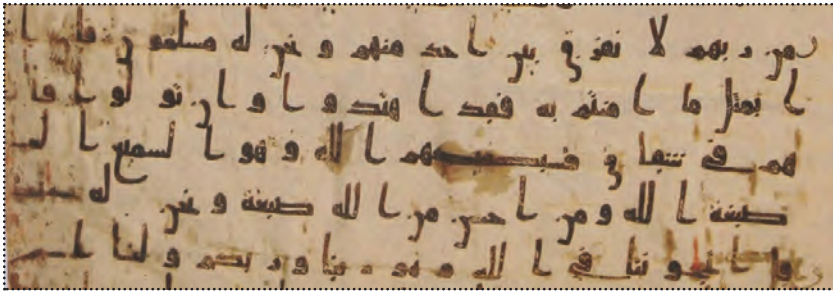 من ربهم لا نفرق بين احد منهم و نحن له مسلمون
ا بمثل ما امنتم به فقد اهتدوا و ان تولوا فا
هم في شقاق فسيكفيكهم الله و هو السميع
صبغة الله و من احسن من الله صبغة و نحن له
اتحجوننا في الله و هو ربنا و ربكم و لنا